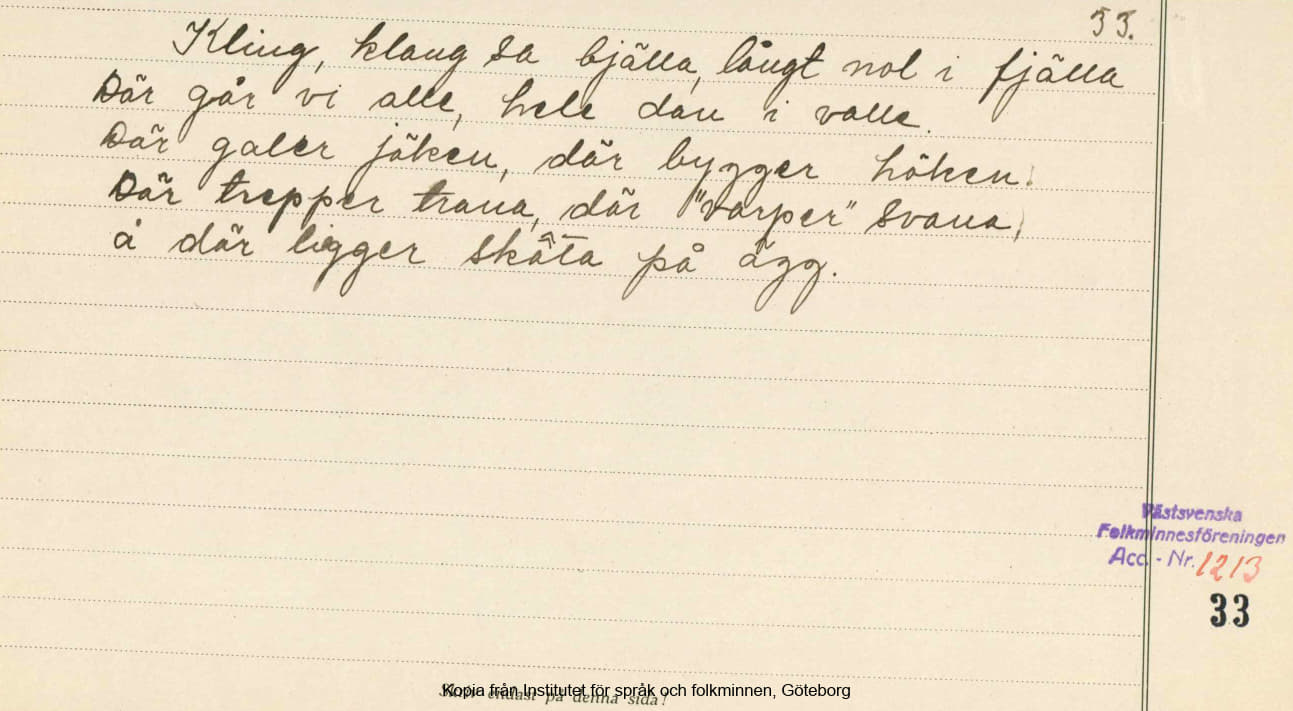 33.
Kling, klang sa bjälla, långt nol i fjälla
Där går vi alle, hele dan i valle.
Där galer jöken, där bygger höken.
Där trepper trana, där "varper" svana,
å där ligger skâta på ägg.
Västsvenska
Folkminnesföreningen
Acc. - Nr. 1213
33
Skriv endast på denna sida!
Kopia från Institutet för språk och folkminnen, Göteborg